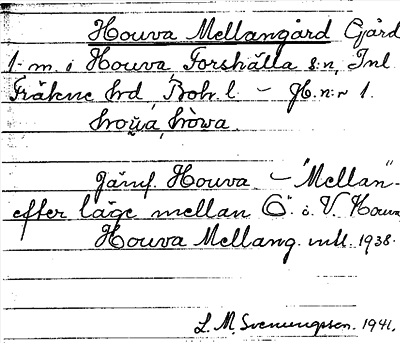 Houva Mellangård Gård
1 m. i Houva Forshälla s:n, Inl.
Fräkne hrd, Boh. l. – Jb. n:r 1.
hròwa.
Jämf. Houva – "Mellan"
efter läge mellan Ö. i. V. Houva
Houva Mellang. 1938.
L. M. Svenungsson. 1941.